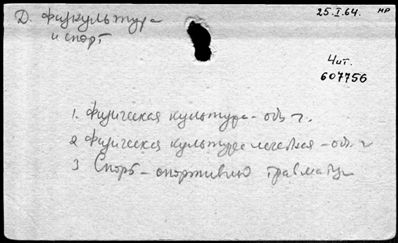 Д. физкультура
и спорт
25.I.64. НР
Чит.
607756
1. Физическая культура - общ. г.
2 Физическая культура лечебная - общ. г
3 Спорт - спортивно